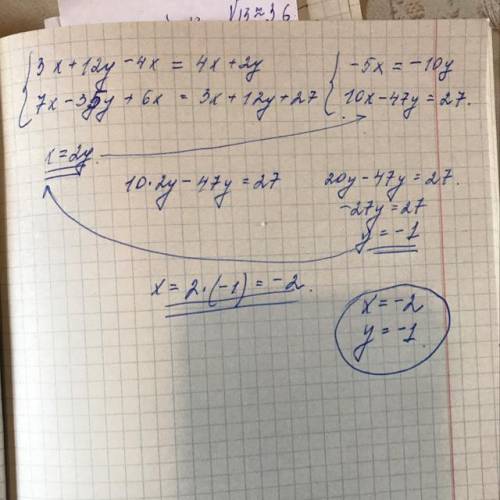 √13≈3,6
3x+12y-4x = 4x+2y
7x-35y+6x = 3x+12y+27
-5x = -10y
10x-47y = 27.
x=2y.
10·2y-47y=27
20y-47y=27.
-27y=27
y=-1
x=2·(-1)=-2.
x=-2
y=-1.